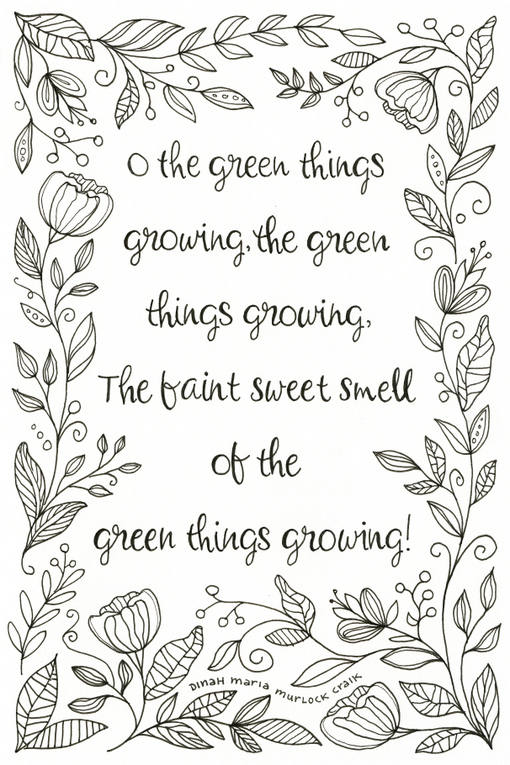 O the green things
growing, the green
things growing,
The faint sweet smell
of the
green things growing!
DINAH MARIA MURLOCK CRAIK